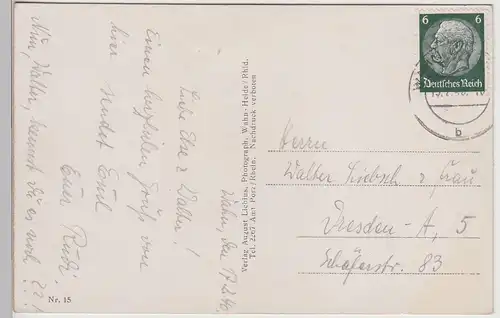 Wahn, den 17.2.40.
Liebe Else & Walter!
Einen herzlichen Gruß von
hier sendet Euch
Euer Rudi.
Nun, Walter, kennst Du es noch ??!
Verlag August Lichius, Photograph, Wahn-Heide / Rhld.
Tel. 2267 Amt Porz / Rhein. Nachdruck verboten
Nr. 15
6 6
Deutsches Reich
b
Herrn
Walter Liebsch & Frau
Dresden-A, 5
Schäferstr. 83